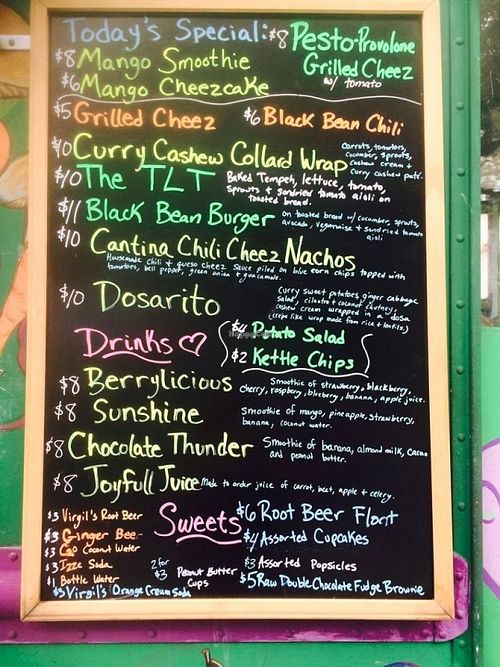 Today's Special:
$8 Mango Smoothie
$6 Mango Cheezcake
$8 Pesto-Provolone
Grilled Cheez
w/ tomato
$5 Grilled Cheez
$6 Black Bean Chili
$10 Curry Cashew Collard Wrap
Carrots, tomatoes,
cucumber, sprouts,
cashew cream +
curry cashew paté.
$10 The TLT
Baked Tempeh, lettuce, tomato,
Sprouts & sundried tomato aioli on
toasted bread.
$11 Black Bean Burger
on toasted bread w/ cucumber, sprouts,
avocado, vegannaise & sundried tomato
aioli
$10 Cantina Chili Cheez Nachos
Housemade chili & queso cheez sauce piled on blue corn chips topped with
tomatoes, bell pepper, green onion & guacamole.
$10 Dosarito
Curry sweet potatoes, ginger cabbage
salad, cilantro & coconut chutney,
cashew cream wrapped in a dosa
(crepe like wrap made from rice & lentils)
$4 Potato Salad
$2 Kettle Chips
Drinks
$8 Berrylicious
Smoothie of strawberry, blackberry,
cherry, raspbery, blueberry, banana, apple juice.
$8 Sunshine
Smoothie of mango, pineapple, strawberry,
banana, coconut water.
$8 Chocolate Thunder
Smoothie of banana, almond milk, cacao
and peanut butter.
$8 Joyfull Juice
Made to order juice of carrot, beet, apple & celery.
$3 Virgil's Root Beer
$3 Ginger Beer
$3 Coconut Water
$3 Izze Soda
$1 Bottle Water
$3 Virgil's Orange Cream Soda
Sweets
$6 Root Beer Float
$4 Assorted Cupcakes
2 for
$3
Peanut Butter
Cups
$3 Assorted Popsicles
$5 Raw Double Chocolate Fudge Brownie